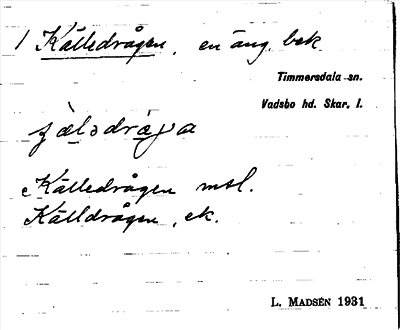 1 Källedrågen, en äng. bek.
Timmersdala sn.
Vadsbo hd. Skar. l.
Källedrågen mtl.
Källdrågen, ek.
L. MADSÉN 1931